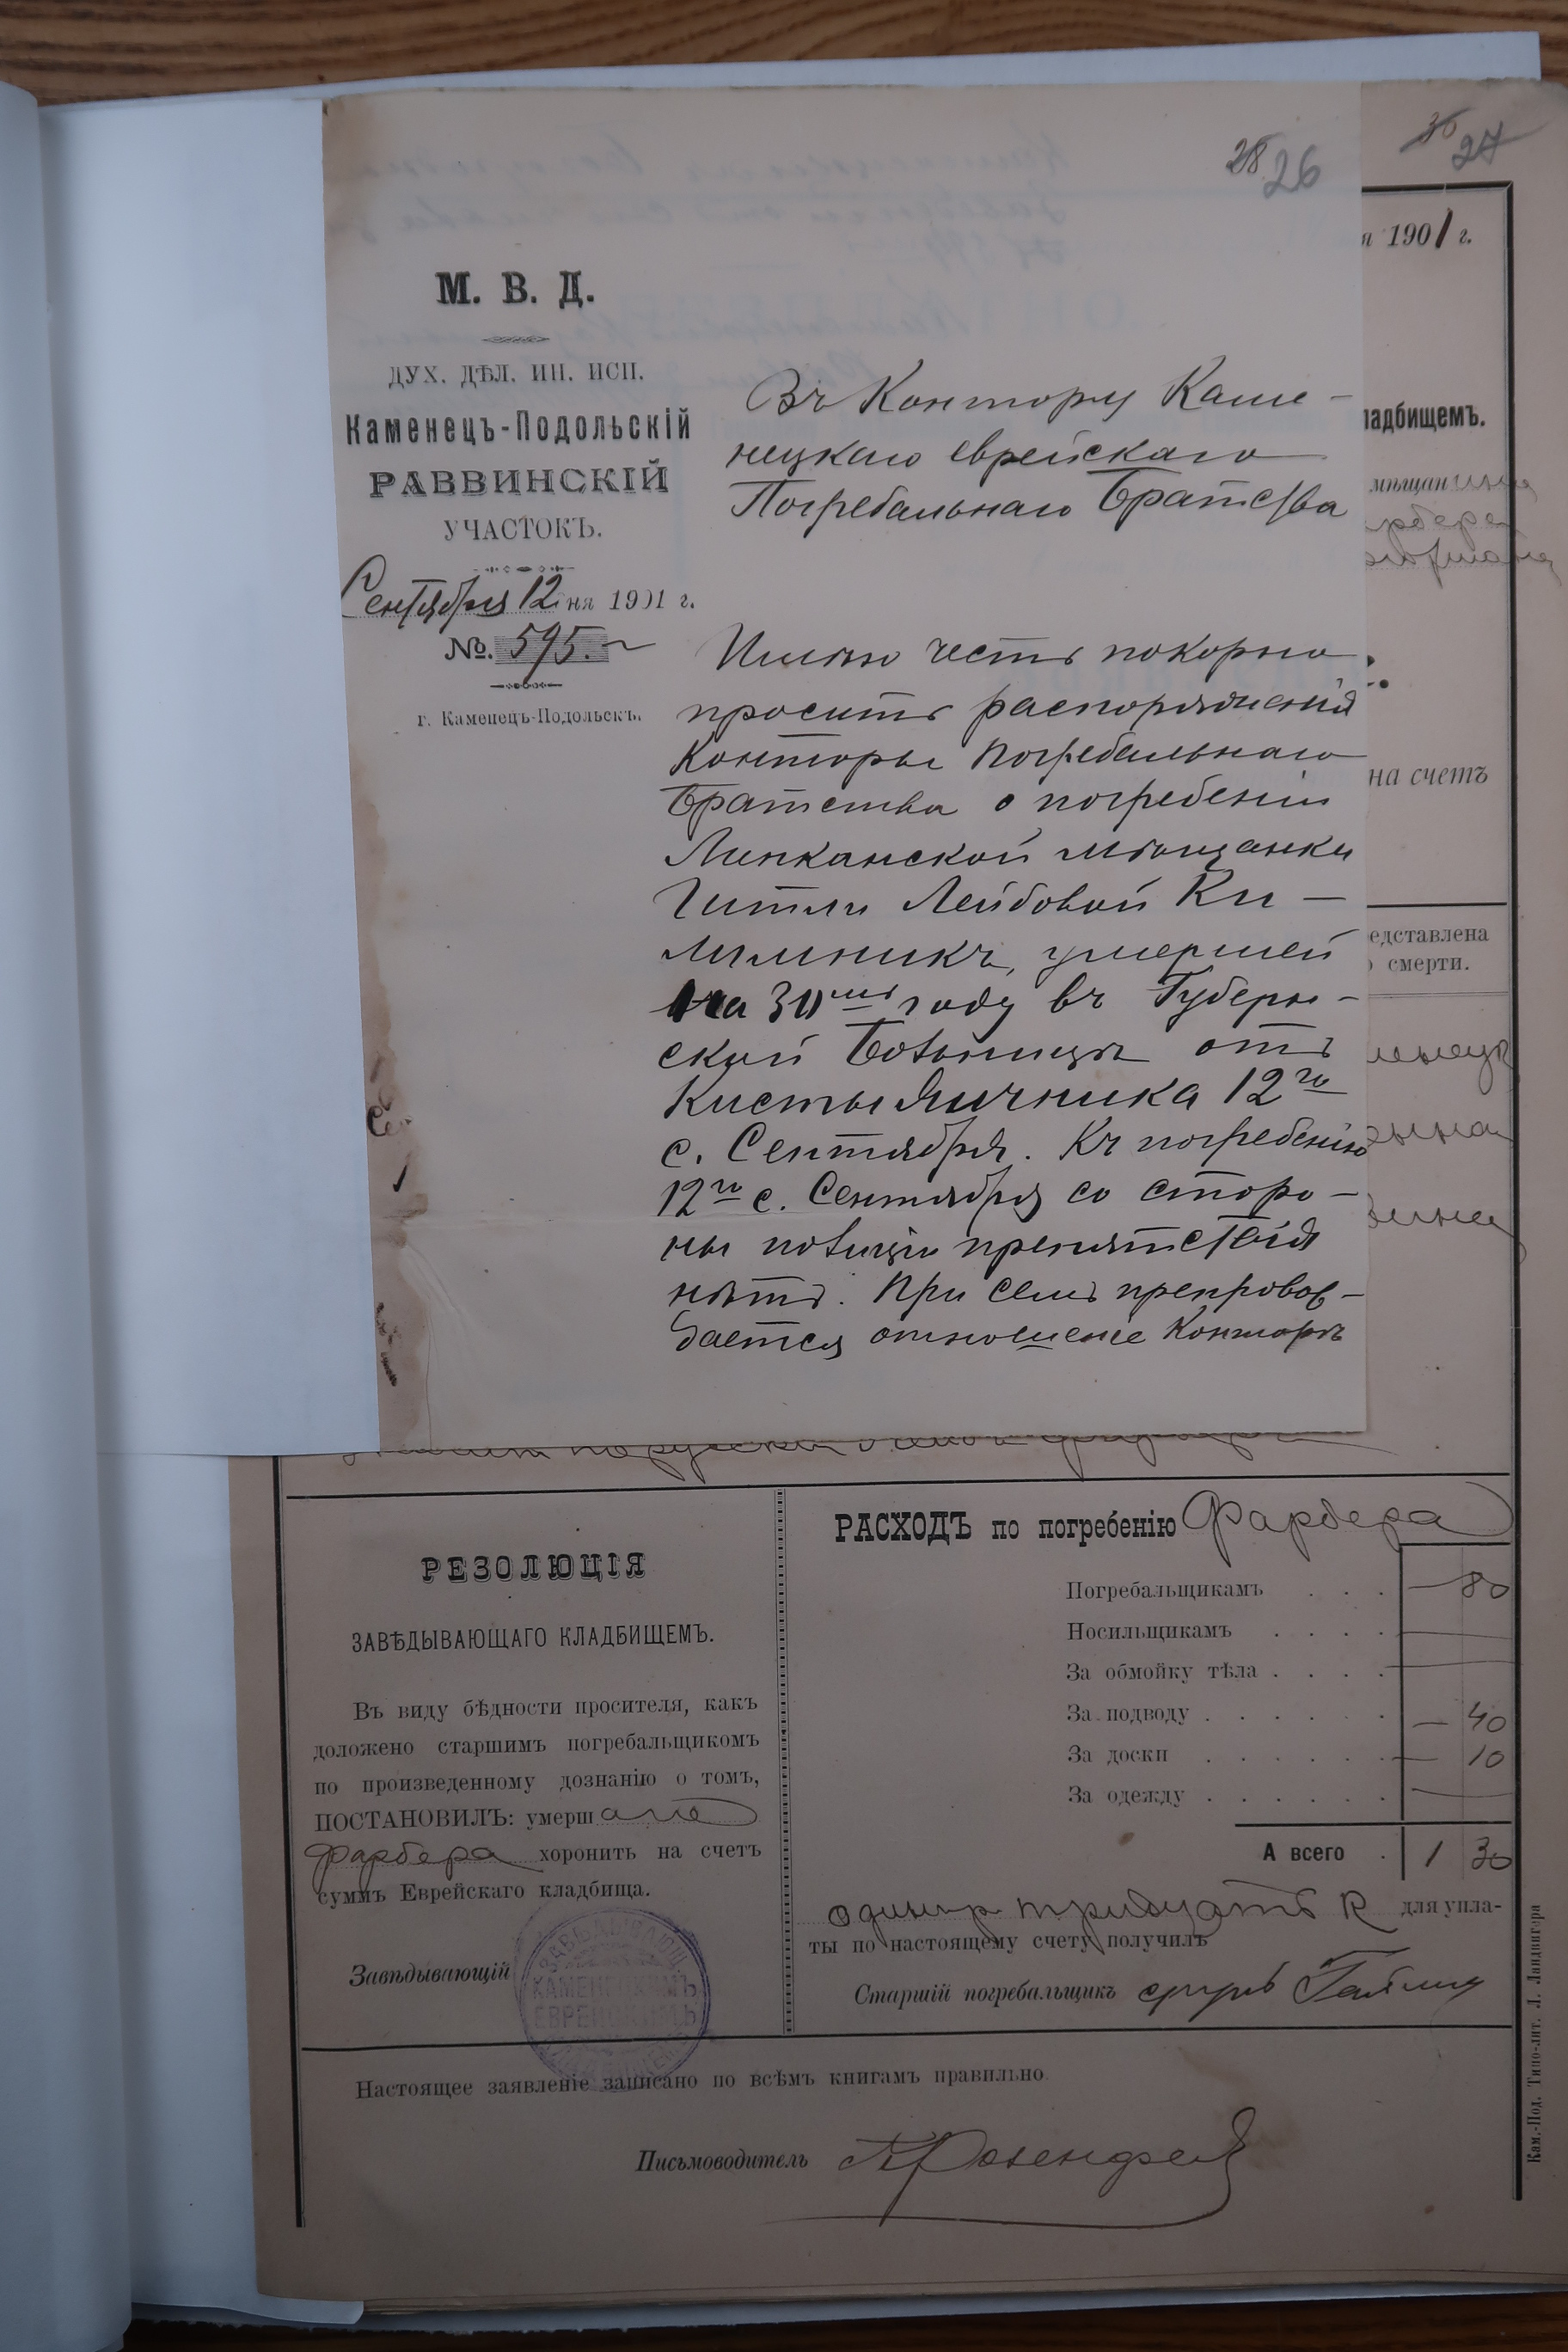 28 26
М. В. Д.
ДУХ. ДѢЛ. ИН. ИСП.
Каменецъ-Подольскій
РАВВИНСКІЙ
УЧАСТОКЪ.
Сентября 12 дня 1901 г.
№. 595.
г. Каменецъ-Подольскъ.
Въ Контору Каме-
нецкаго еврейскаго
Погребальнаго Братства
Имѣю честь покорно
просить распоряженія
Конторы погребальнаго
Братства о погребеніи
Липканской мѣщанки
Гитли Лейбовой Ки-
лимникъ, умершей
на 30мъ году въ Губерн-
ской Больницѣ отъ
Кисты яичника 12го
с. Сентября. Къ погребенію
12го с. Сентября со сторо-
ны полиціи препятствія
нѣтъ. При семъ препровож-
дается отношеніе Конторѣ
36 27
я 1901 г.
ладбищемъ.
мѣщан
на счетъ
едставлена
о смерти.
РЕЗОЛЮЦІЯ
ЗАВѢДЫВАЮЩАГО КЛАДБИЩЕМЪ.
Въ виду бѣдности просителя, какъ
доложено старшимъ погребальщикомъ
по произведенному дознанію о томъ,
ПОСТАНОВИЛЪ: умерш
Фарбера хоронить на счетъ
суммъ Еврейскаго кладбища.
Завѣдывающій
КАМЕНЕЦКИМЪ
ЕВРЕЙСКИМЪ
РАСХОДЪ по погребенію Фарбера
Погребальщикамъ . . . — 80
Носильщикамъ . . . . —
За обмойку тѣла . . . . —
За подводу . . . . . . — 40
За доски . . . . . . — 10
За одежду . . . . . . —
А всего . 1 30
одинъ р тридцать К для упла-
ты по настоящему счету получилъ
Старшій погребальщикъ
Настоящее заявленіе записано по всѣмъ книгамъ правильно
Письмоводитель Розенфельд
Кам.-Под. Типо-лит. Л. Ландвигера